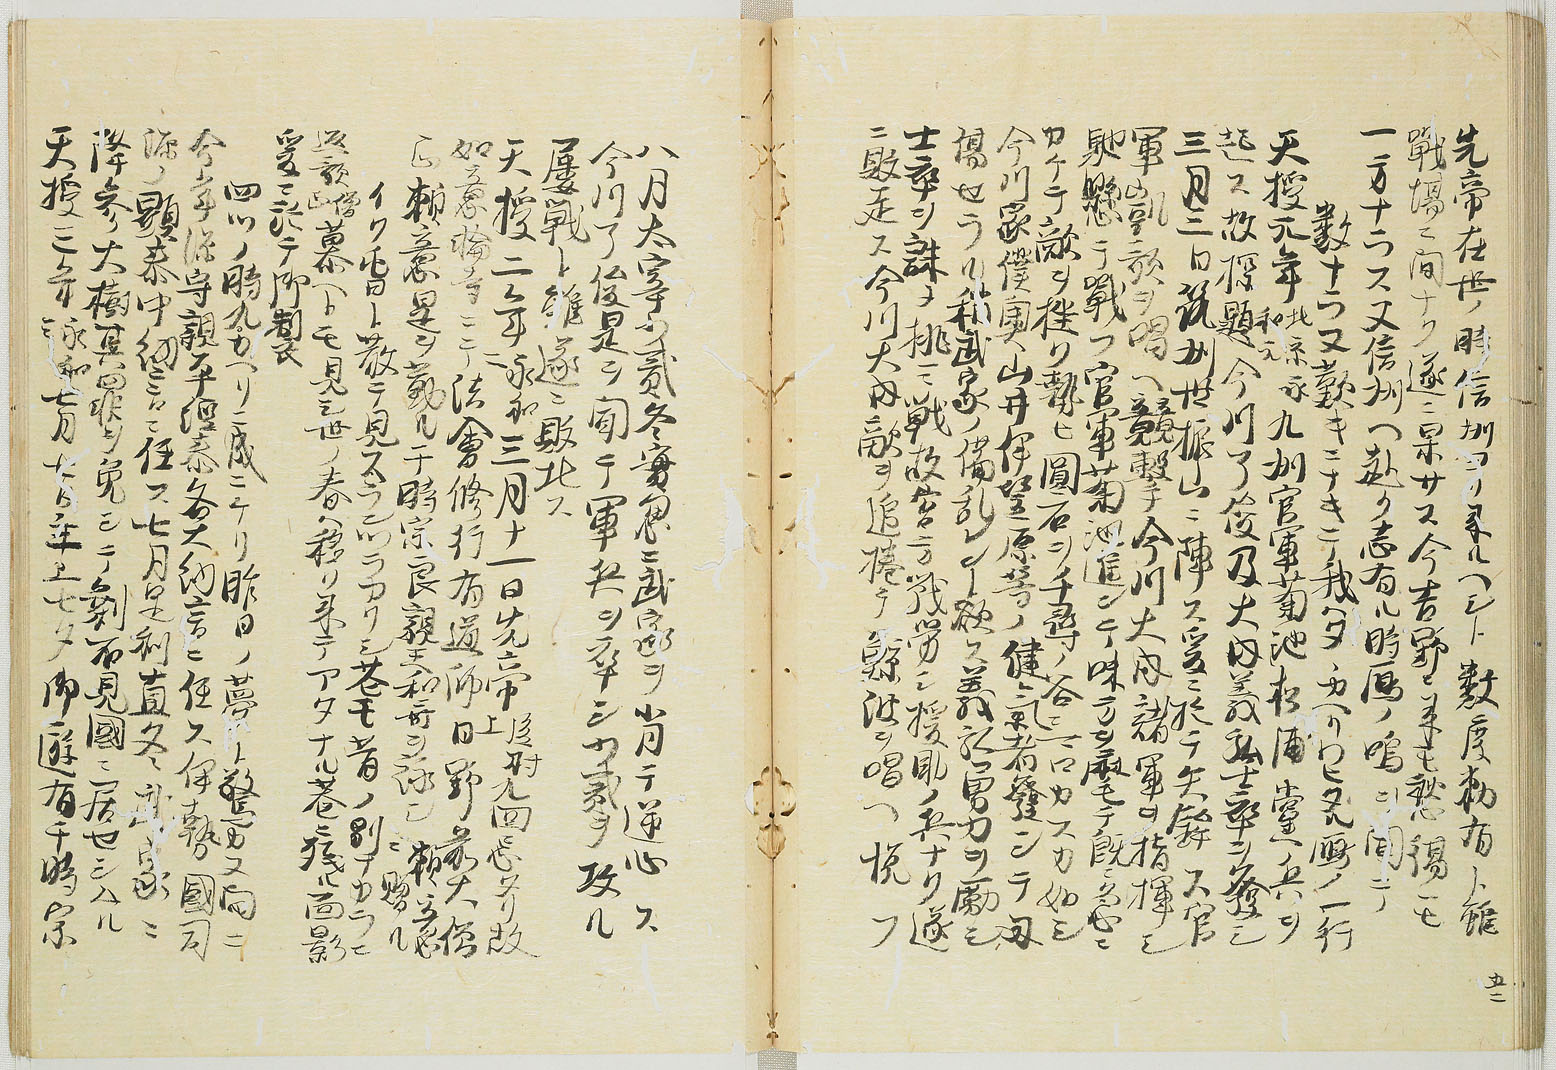 先帝在世ノ時信州ヨリ来ルヘシト数度勅有ト雖
戦場ニ間ナク遂ニ果サス今吉野ニ来モ愁傷モ
一方ナラス又信州ヘ赴ク志有ル時鴈ノ鳴ヲ聞テ
数ナラヌ歎キニナキテ我タタ帰リワヒタル鴈ノ一行
天授元年北京永和元九州官軍菊池松浦党ノ兵ヲ
起ス故探題今川了俊及大内義弘士卒ヲ発シ
三月三日筑州世振山ニ陣ス爰ニ於テ矢鋒ス官
軍凱歌ヲ唱ヘ競撃手今川大内諸軍ヲ指揮シ
馳懸テ戦フ官軍菊池進ンテ味方ヲ麾テ既ニ急ニ
カケテ敵ヲ挫リ勢ヒ圓石ヲ千尋ノ谷ニコロカスカ如シ
今川家僕奥山井伊笠原等ノ健々者発シテ
傷セラル稍武家ノ備乱レント欲ス義弘勇力ヲ励シ
士卒ヲ誅メ挑テ戦故官方戦労シ援助ノ兵ナク遂
ニ敗走ス今川大内敵ヲ追捲テ縣波ヲ唱ヘ悦フ
八月太宰少貳冬資魚ニ武家ヲ背テ逆心ス
今川了俊是ヲ聞テ軍兵ヲ率シ少貳ヲ攻ル
屡戦ト雖遂ニ敗北ス
天授二年永和二三月十一日先帝後村上尤回忌ヨリ故
如意輪寺ニテ法會修行有道師日野前大僧
正頼意是ヲ勤ル干時宗良親王和哥ヲ詠シ頼意ニ贈ル
イク昔ト散テ見スラシツラカリシ花モ昔ノ別ナカラニ
返歌僧正慕ヘトモ見シ世ノ春ハ移リ来テアタナル花ニ残ル面影
爰ニ於テ御製衣
四ツノ時九カヘリニ成ニケリ昨日ノ夢ト驚カヌ間ニ
今年源守親平經泰各大納言ニ任ス伊勢國司
源ノ顕泰中納言ニ任ス七月足利直冬武家ニ
降参ス大樹其罪ヲ免シテ剣石見國ニ居セシムル
天授三年永和三七月七日主上七夕御遊有干時宗
五二